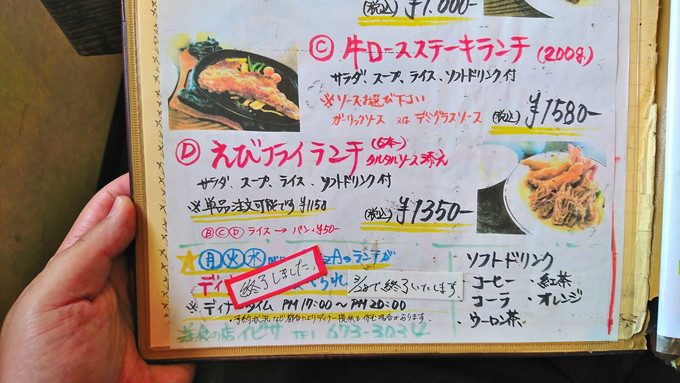 (税込) ¥1.000-
Ⓒ 牛ロースステーキランチ (200g)
サラダ、スープ、ライス、ソフトドリンク付
※ソースお選び下さい
ガーリックソース 又は デミグラスソース
(税込) ¥1580-
Ⓓ えびフライランチ (6本) タルタルソース添え
サラダ、スープ、ライス、ソフトドリンク付
※単品注文可能です ¥1150
(税込) ¥1350-
ⒷⒸⒹ ライス → パン +¥50-
★月火水 Aのランチが
終了しました。
で終了いたします
※ディナータイム PM17:00〜PM20:00
の店イビサ TEL 673-3034
ソフトドリンク
・コーヒー ・紅茶
・コーラ ・オレンジ
・ウーロン茶